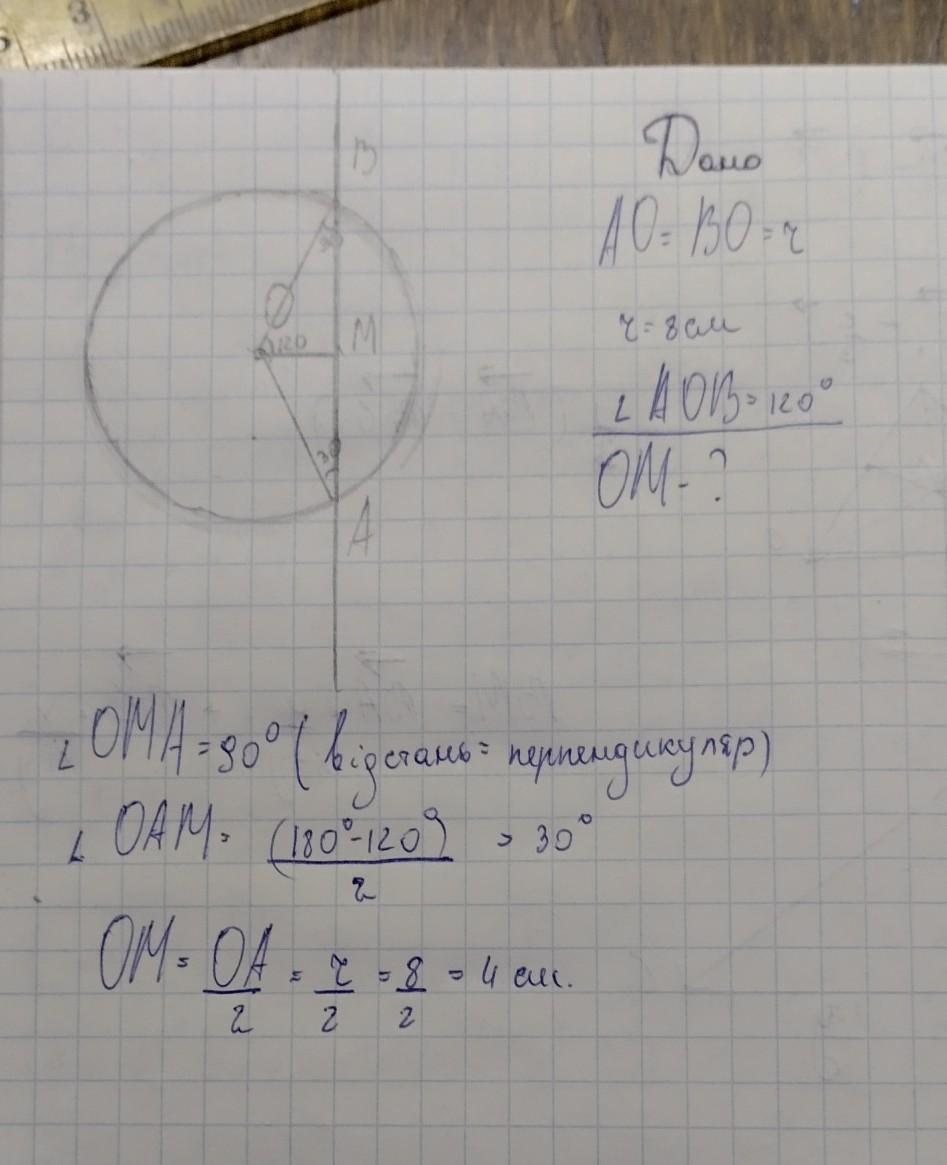 3
B
30
O
120
M
30
A
Дано
AO = BO = r
r = 8 см
∠AOB = 120°
OM - ?
∠OMA = 90° (відстань = перпендикуляр)
∠OAM = (180° - 120°) / 2 = 30°
OM = OA / 2 = r / 2 = 8 / 2 = 4 см.